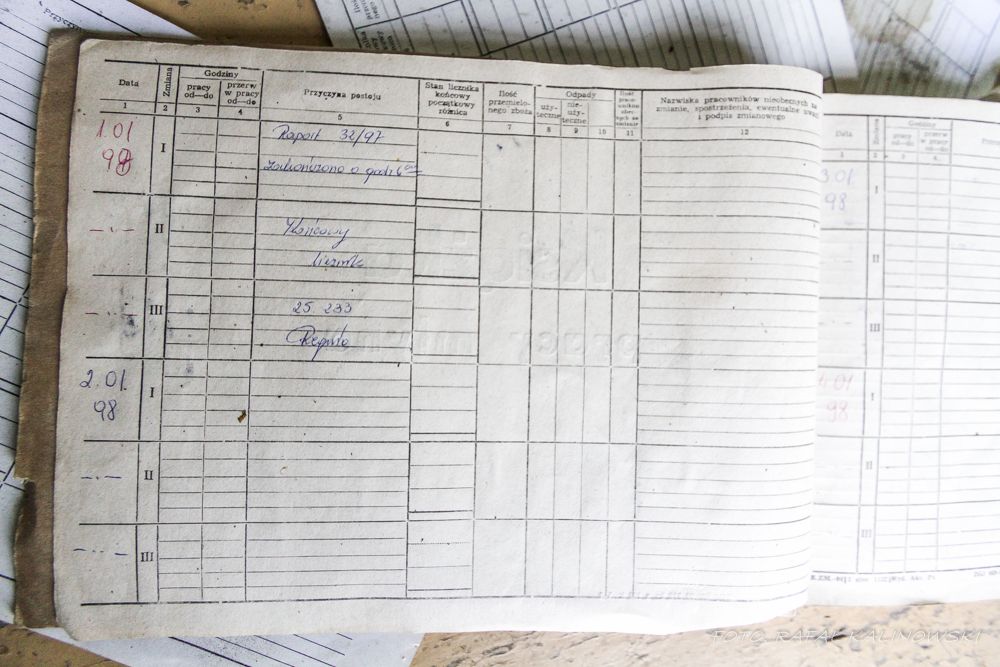 Data
Zmiana
Godziny
pracy od—do
przerw w pracy od—do
Przyczyna postoju
Stan licznika
końcowy
początkowy
różnica
Ilość
przemielo-
nego zboża
Odpady
uży-
teczne
nie-
uży-
teczne
Nazwiska pracowników nieobecnych na
zmianie, spostrzeżenia, ewentualne uwagi
i podpis zmianowego
1 2 3 4 5 6 7 8 9 10 11 12
1.01
98
I
Raport 32/97
Zakończono o godz 6
II
Końcowy
licznik
III
25 233
2.01
98
I
II
III
Data
Zmiana
Godziny
pracy
od—do
przerw
w pracy
od—do
1 2 3 4
3.01
98
I
II
III
4.01
98
I
II
III
FOTO. RAFAŁ KALINOWSKI